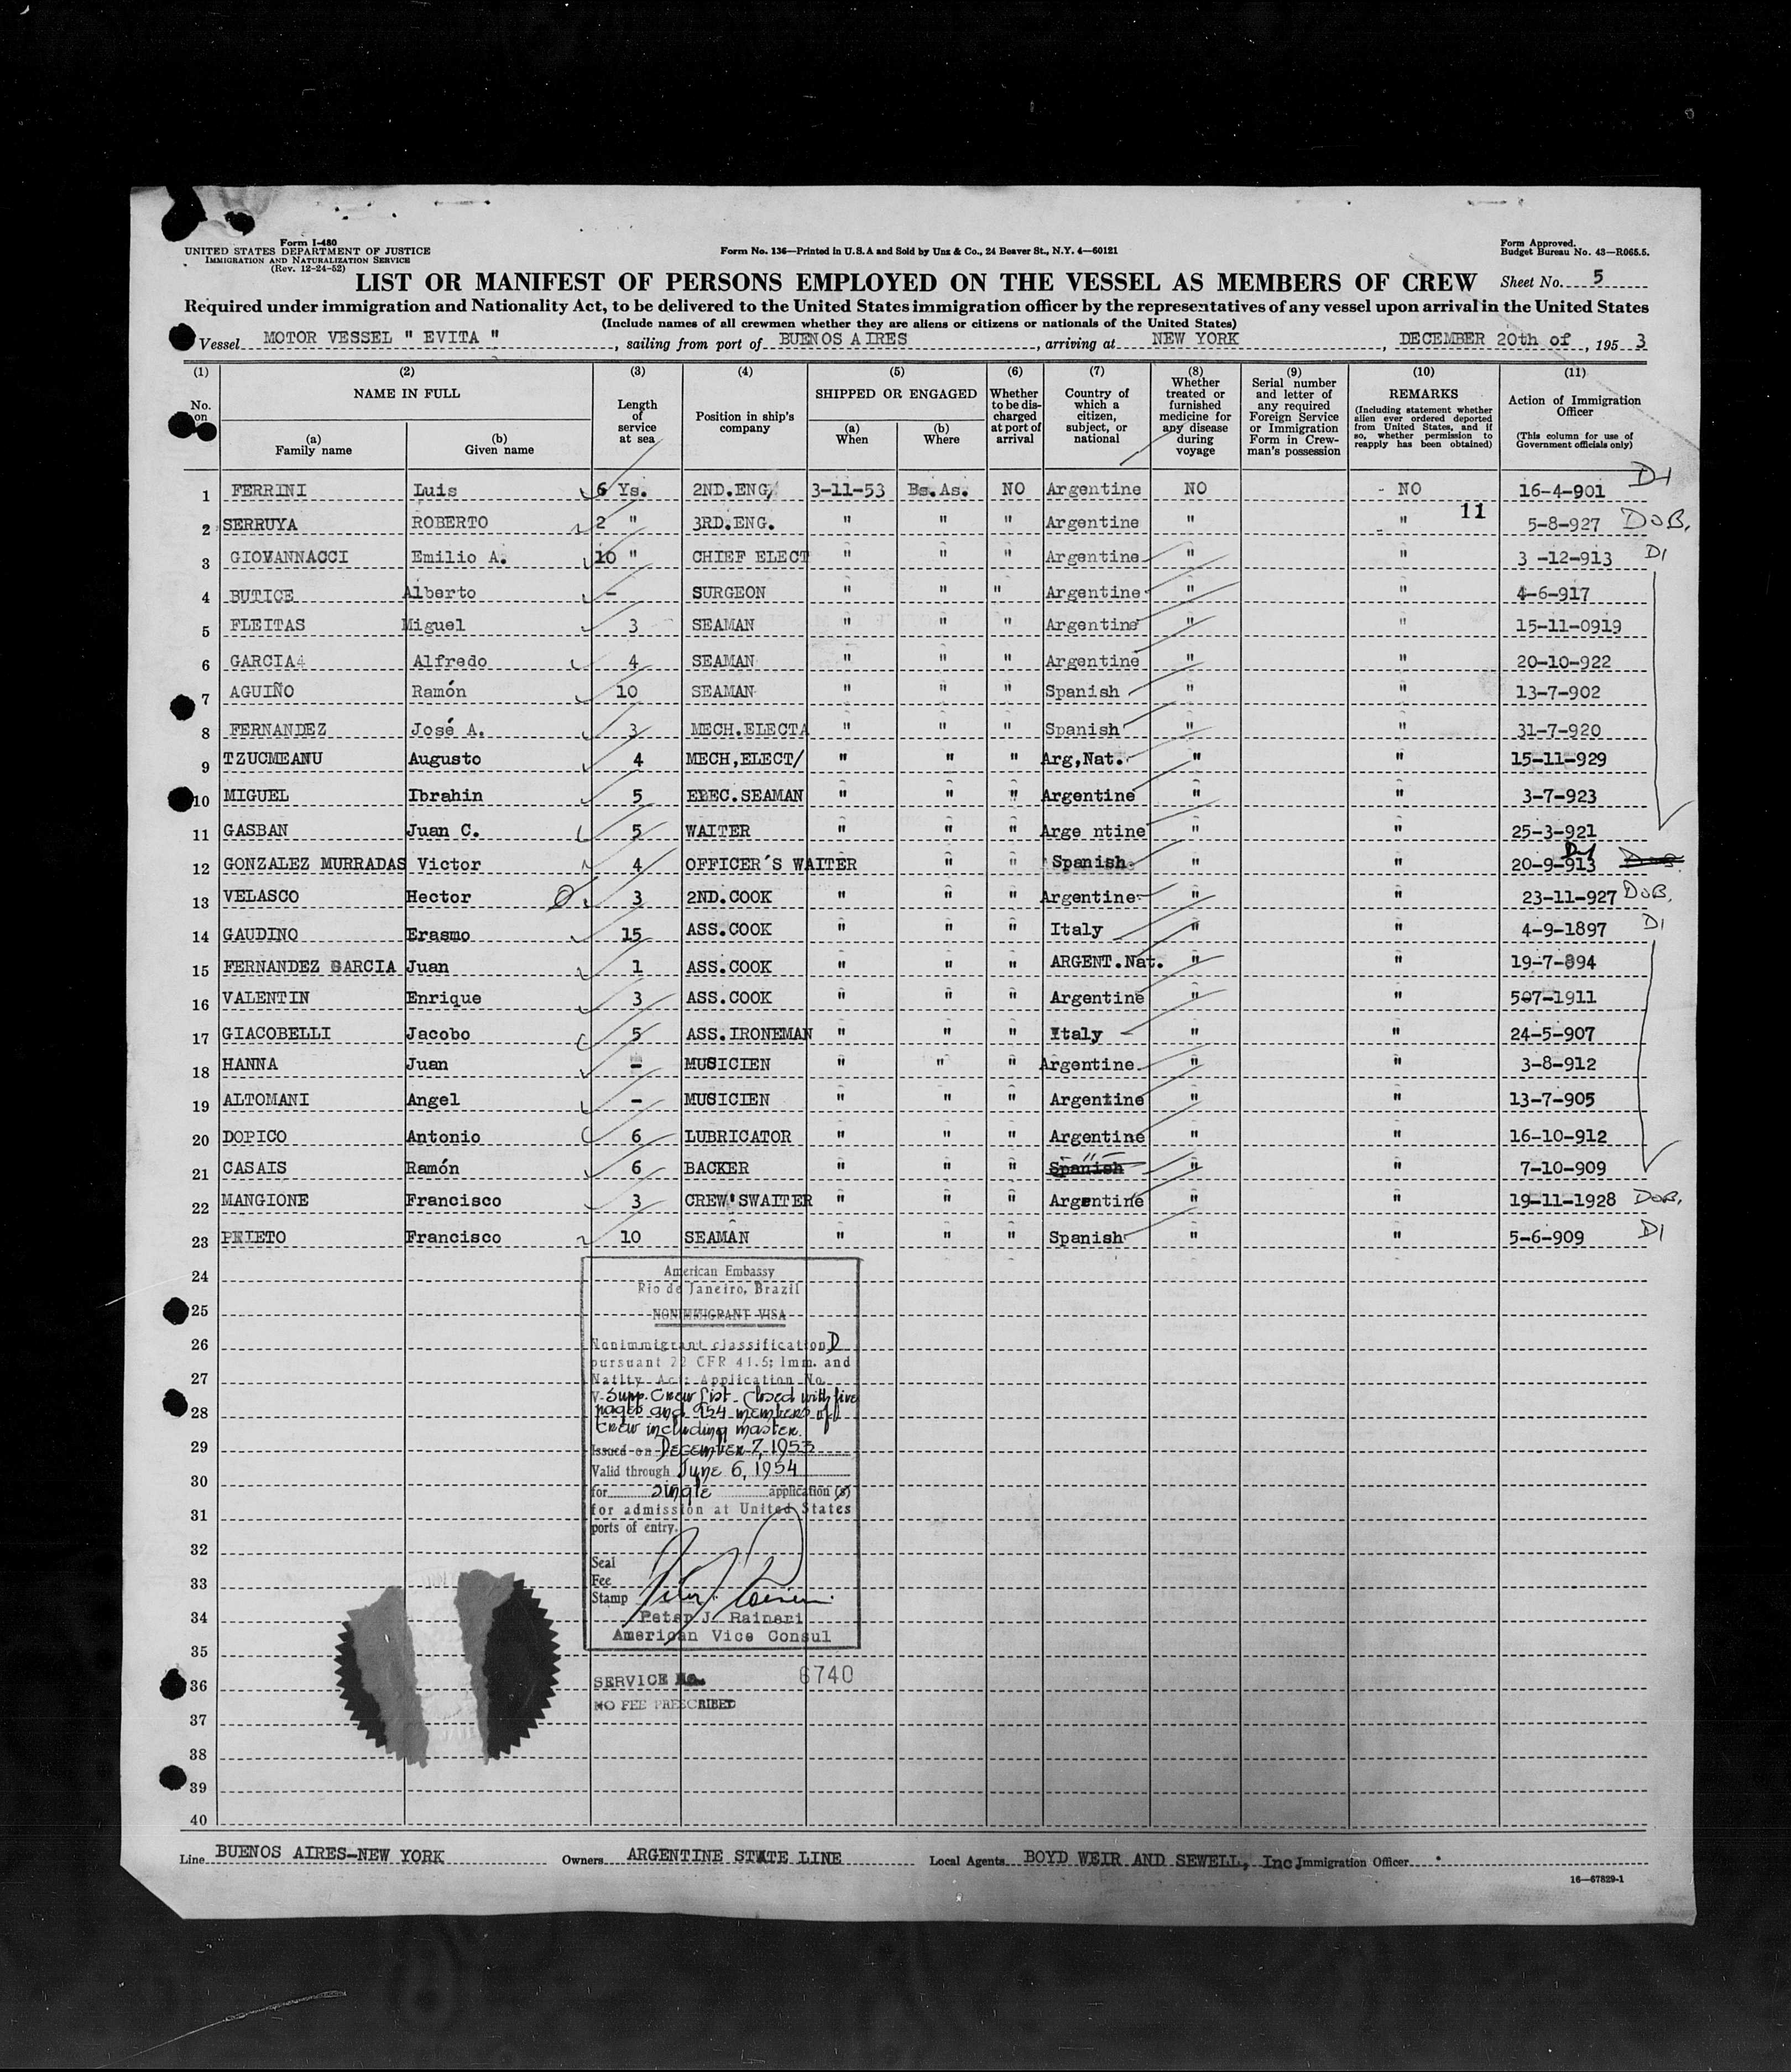 Form I-480
UNITED STATES DEPARTMENT OF JUSTICE
IMMIGRATION AND NATURALIZATION SERVICE
(Rev. 12-24-52)
Form No. 136—Printed in U.S.A and Sold by Unz & Co., 24 Beaver St., N.Y. 4—60121
Form Approved.
Budget Bureau No. 43—R065.5.
LIST OR MANIFEST OF PERSONS EMPLOYED ON THE VESSEL AS MEMBERS OF CREW
Sheet No. 5
Required under immigration and Nationality Act, to be delivered to the United States immigration officer by the representatives of any vessel upon arrival in the United States
(Include names of all crewmen whether they are aliens or citizens or nationals of the United States)
Vessel MOTOR VESSEL " EVITA ", sailing from port of BUENOS AIRES, arriving at NEW YORK, DECEMBER 20th of, 195 3
(1) (2) (3) (4) (5) (6) (7) (8) (9) (10) (11)
No. on
NAME IN FULL
(a) Family name
(b) Given name
Length of service at sea
Position in ship's company
SHIPPED OR ENGAGED
(a) When
(b) Where
Whether to be discharged at port of arrival
Country of which a citizen, subject, or national
Whether treated or furnished medicine for any disease during voyage
Serial number and letter of any required Foreign Service or Immigration Form in Crewman's possession
REMARKS
(Including statement whether alien ever ordered deported from United States, and if so, whether permission to reapply has been obtained)
Action of Immigration Officer
(This column for use of Government officials only)
1 FERRINI Luis 6 Ys. 2ND.ENG/ 3-11-53 Bs.As. NO Argentine NO - NO 16-4-901 D1
2 SERRUYA ROBERTO 2 " 3RD.ENG. " " " Argentine " " 11 5-8-927 DOB.
3 GIOVANNACCI Emilio A. 10 " CHIEF ELECT " " " Argentine " " 3 -12-913 D1
4 BUTICE Alberto - SURGEON " " " Argentine " " 4-6-917
5 FLEITAS Miguel 3 SEAMAN " " " Argentine " " 15-11-0919
6 GARCIA4 Alfredo 4 SEAMAN " " " Argentine " " 20-10-922
7 AGUIÑO Ramón 10 SEAMAN " " " Spanish " " 13-7-902
8 FERNANDEZ José A. 3 MECH.ELECTA " " " Spanish " " 31-7-920
9 TZUCMEANU Augusto 4 MECH,ELECT/ " " " Arg,Nat. " " 15-11-929
10 MIGUEL Ibrahin 5 ELEC.SEAMAN " " " Argentine " " 3-7-923
11 GASBAN Juan C. 5 WAITER " " " Arge ntine " " 25-3-921
12 GONZALEZ MURRADAS Victor 4 OFFICER'S WAITER " " Spanish " " 20-9-913 D1
13 VELASCO Hector 3 2ND.COOK " " " Argentine " " 23-11-927 DOB.
14 GAUDINO Erasmo 15 ASS.COOK " " " Italy " " 4-9-1897 D1
15 FERNANDEZ GARCIA Juan 1 ASS.COOK " " " ARGENT.Nat. " " 19-7-894
16 VALENTIN Enrique 3 ASS.COOK " " " Argentine " " 507-1911
17 GIACOBELLI Jacobo 5 ASS.IRONEMAN " " " Italy " " 24-5-907
18 HANNA Juan - MUSICIEN " " " Argentine " " 3-8-912
19 ALTOMANI Angel - MUSICIEN " " " Argentine " " 13-7-905
20 DOPICO Antonio 6 LUBRICATOR " " " Argentine " " 16-10-912
21 CASAIS Ramón 6 BACKER " " " Spanish " " " 7-10-909
22 MANGIONE Francisco 3 CREW'SWAITER " " " Argentine " " 19-11-1928 DOB.
23 PRIETO Francisco 10 SEAMAN " " " Spanish " " 5-6-909 D1
24
25
26
27
28
29
30
31
32
33
34
35
36
37
38
39
40
American Embassy
Rio de Janeiro, Brazil
NONIMMIGRANT VISA
Nonimmigrant classification D
pursuant 22 CFR 41.5; Imm. and
Natlty Act; Application No.
V- Supp. Crew List - Closed with five
pages and 154 members of
Crew including master.
Issued on December 7, 1953
Valid through June 6, 1954
for single application (s)
for admission at United States
ports of entry.
Seal
Fee
Stamp
Peter J. Raineri
American Vice Consul
SERVICE No. 6740
NO FEE PRESCRIBED
Line BUENOS AIRES-NEW YORK Owners ARGENTINE STATE LINE Local Agents BOYD WEIR AND SEWELL, Inc. Immigration Officer
16—67829-1